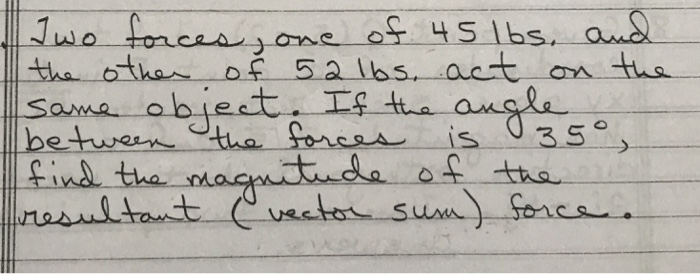 Two forces, one of 45 lbs. and
the other of 52 lbs. act on the
same object. If the angle
between the forces is 35°,
find the magnitude of the
resultant (vector sum) force.